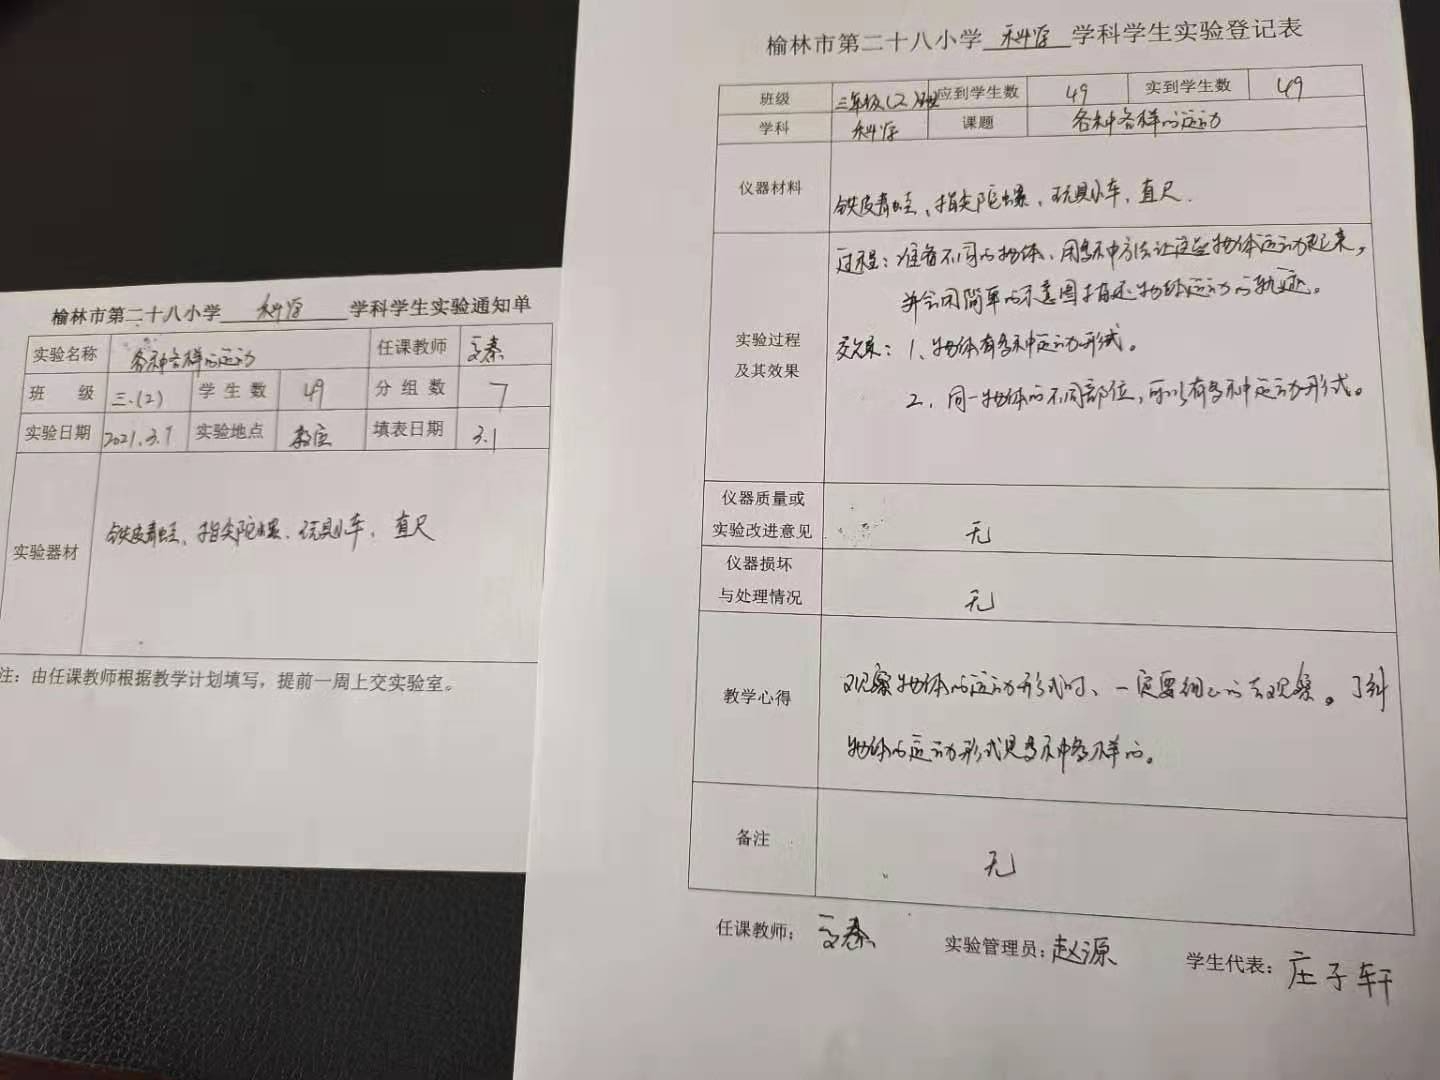 榆林市第二十八小学 科学 学科学生实验通知单
实验名称 各种各样的运动 任课教师 文泰
班 级 三.(2) 学 生 数 49 分 组 数 7
实验日期 2021.3.9 实验地点 教室 填表日期 3.1
实验器材 铁皮青蛙、指尖陀螺、玩具小车、直尺
注：由任课教师根据教学计划填写，提前一周上交实验室。
榆林市第二十八小学 科学 学科学生实验登记表
班级 三年级(2)班 应到学生数 49 实到学生数 49
学科 科学 课题 各种各样的运动
仪器材料 铁皮青蛙、指尖陀螺、玩具小车、直尺.
实验过程
及其效果
过程：准备不同的物体、用多种方法让这些物体运动起来，
并会用简单的示意图描述物体运动的轨迹。
效果：1、物体有多种运动形式。
2、同一物体的不同部位，可以有多种运动形式。
仪器质量或
实验改进意见 无
仪器损坏
与处理情况 无
教学心得
观察物体的运动形式时、一定要细心的去观察。了解
物体的运动形式是多种多样的。
备注 无
任课教师：文泰 实验管理员：赵源 学生代表：庄子轩